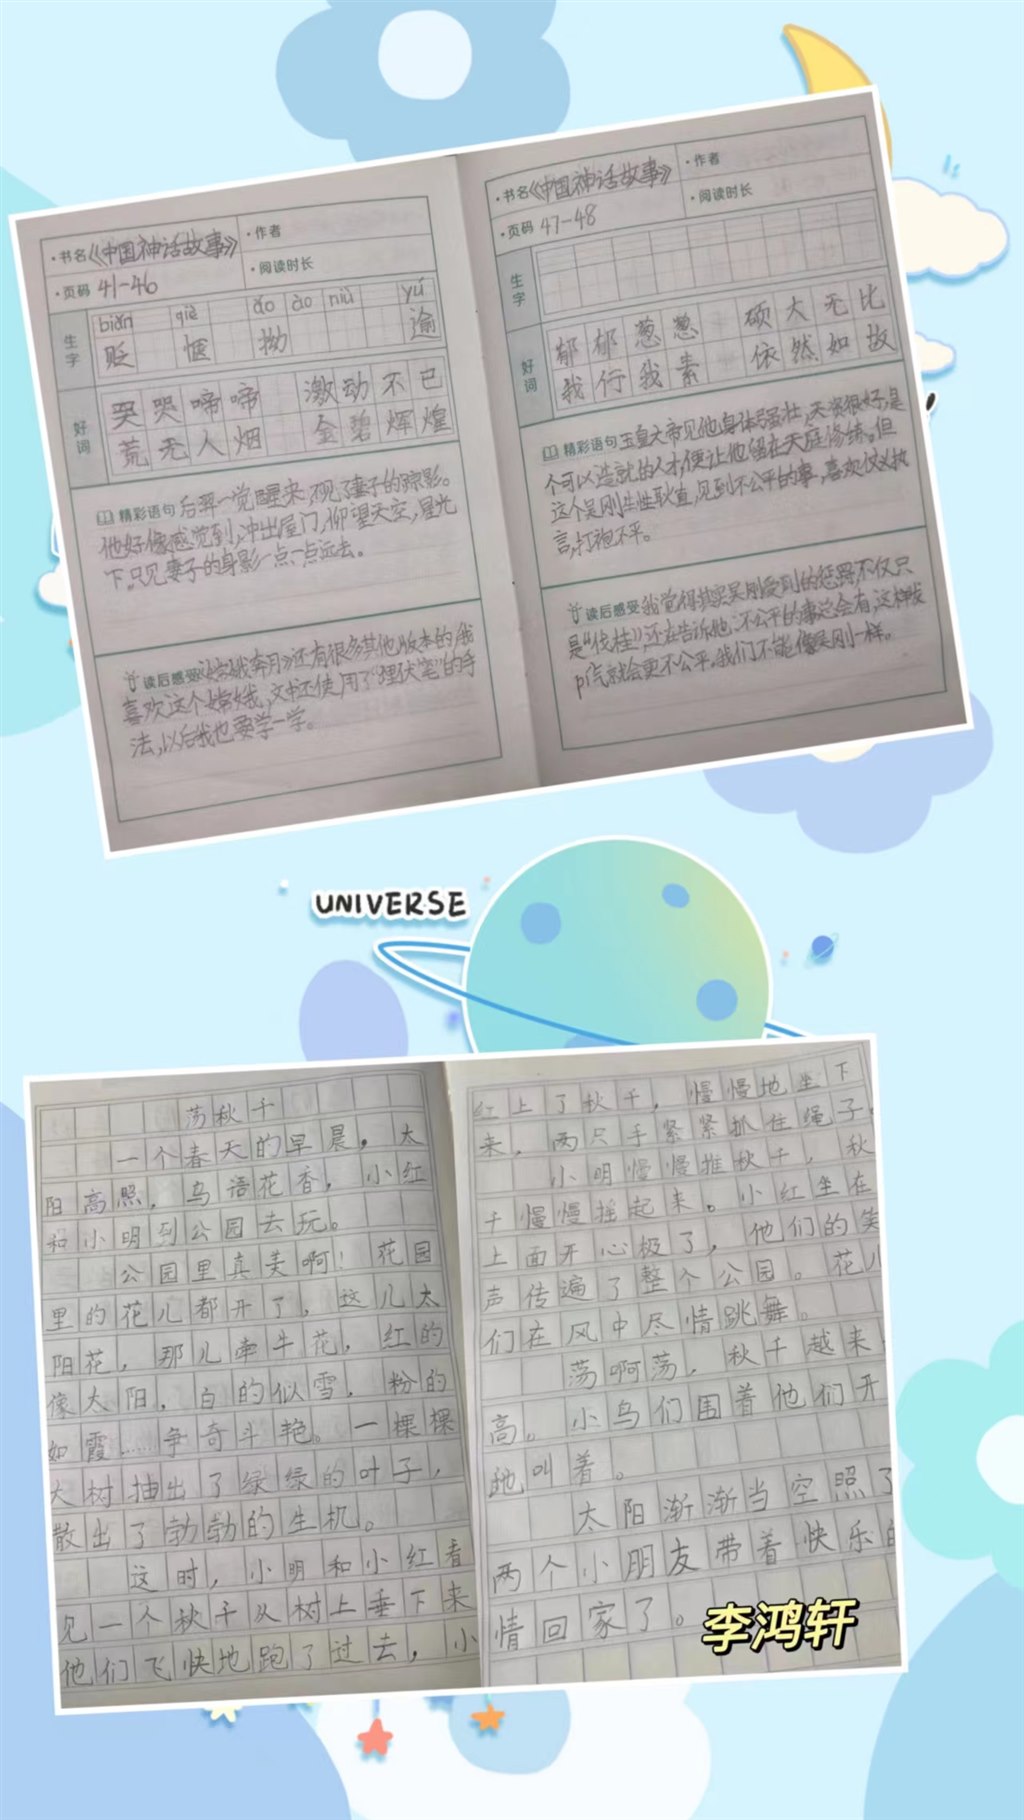 ·书名《中国神话故事》
·作者
·页码 41-46
·阅读时长
生字
biǎn qiè ǎo ào niù yú
贬 惬 拗 逾
好词
哭哭啼啼 激动不已
荒无人烟 金碧辉煌
精彩语句 后羿一觉醒来,不见了妻子的踪影。
他好像感觉到,冲出屋门,仰望天空,星光
下,只见妻子的身影一点一点远去。
读后感受《嫦娥奔月》还有很多其他版本的,我
喜欢这个嫦娥,文中还使用了“埋伏笔”的手
法,以后我也要学一学。
·书名《中国神话故事》
·作者
·页码 47-48
·阅读时长
生字
好词
郁郁葱葱 硕大无比
我行我素 依然如故
精彩语句 玉皇大帝见他身体强壮,天资很好,是
个可以造就的人才,便让他留在天庭修练。但
这个吴刚生性耿直,见到不公平的事,喜欢仗义执
言,打抱不平。
读后感受 我觉得其实吴刚受到的惩罚不仅只
是“伐桂”,还在告诉他:不公平的事总会有,这样发
pí气就会更不公平。我们不能像吴刚一样。
UNIVERSE
荡秋千
一个春天的早晨,太
阳高照,鸟语花香,小红
和小明到公园去玩。
公园里真美啊!花园
里的花儿都开了,这儿太
阳花,那儿牵牛花,红的
像太阳,白的似雪,粉的
如霞……争奇斗艳。一棵棵
大树抽出了绿绿的叶子,
散出了勃勃的生机。
这时,小明和小红看
见一个秋千从树上垂下来
他们飞快地跑了过去,小
红上了秋千,慢慢地坐下
来,两只手紧紧抓住绳子。
小明慢慢推秋千,秋
千慢慢摇起来。小红坐在
上面开心极了,他们的笑
声传遍了整个公园。花儿
们在风中尽情跳舞。
荡啊荡,秋千越来
高。小鸟们围着他们开
地叫着。
太阳渐渐当空照了
两个小朋友带着快乐的
情回家了。
李鸿轩